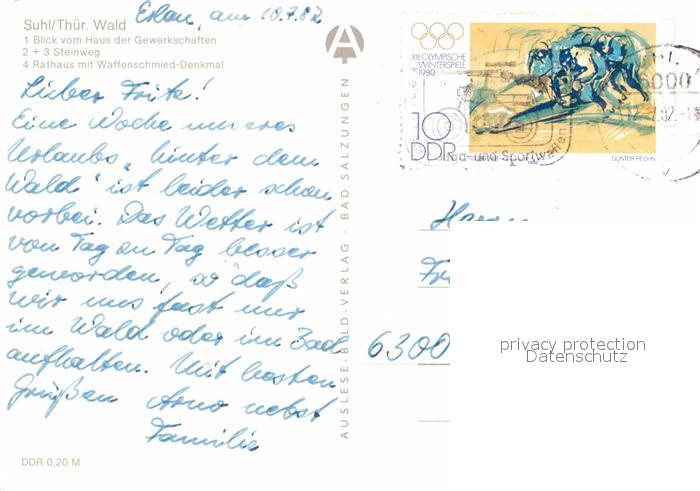 Erlau, am 10.7.82
Suhl/Thür. Wald
1 Blick vom Haus der Gewerkschaften
2 + 3 Steinweg
4 Rathaus mit Waffenschmied-Denkmal
Lieber Fritz!
Eine Woche unseres
Urlaubs „hinter dem
Wald" ist leider schon
vorbei. Das Wetter ist
von Tag zu Tag besser
geworden, so daß
wir uns fast nur
im Wald oder im Bad
aufhalten. Mit besten
Grüßen Arno nebst
Familie
DDR 0,20 M
AUSLESE-BILD-VERLAG · BAD SALZUNGEN
XIII. OLYMPISCHE
WINTERSPIELE
1980
10
DDR
GÜNTER RECHN
1980
6000
und Sportwaffen
Herrn
Fri
6300
privacy protection
Datenschutz